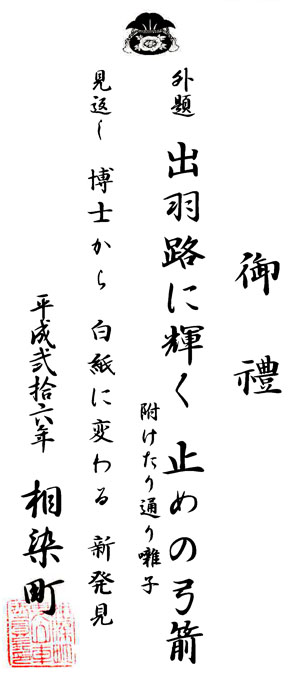 御禮
外題 出羽路に輝く 止めの弓箭
附けたり通り囃子
見返し 博士から 白紙に変わる 新発見
平成弐拾六年 相染町